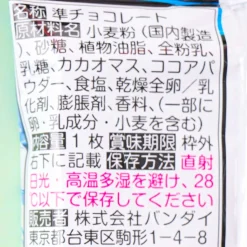 名称 準チョコレート
原材料名 小麦粉(国内製造
)、砂糖、植物油脂、全粉乳、
乳糖、カカオマス、ココアパ
ウダー、食塩、乾燥全卵/乳
化剤、膨脹剤、香料、(一部に
卵・乳成分・小麦を含む)
内容量 1枚 賞味期限 枠外
右下に記載 保存方法 直射
日光・高温多湿を避け、28
℃以下で保存してください
販売者 株式会社バンダイ
東京都台東区駒形1-4-8